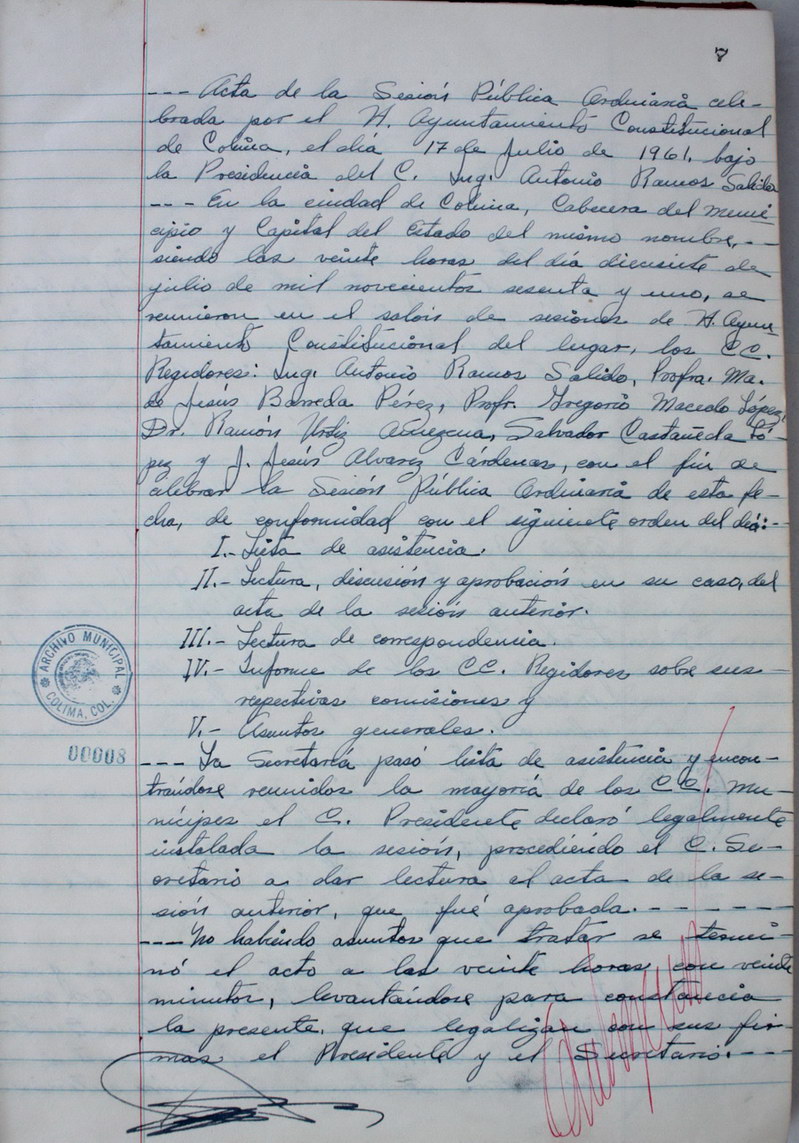 7
--- Acta de la Sesión Pública Ordinaria cele-
brada por el H. Ayuntamiento Constitucional
de Colima, el día 17 de Julio de 1961, bajo
la Presidencia del C. Ing. Antonio Ramos Salido
--- En la ciudad de Colima, Cabecera del Muni
cipio y Capital del Estado del mismo nombre, --
siendo las veinte horas del día diecisiete de
julio de mil novecientos sesenta y uno, se
reunieron en el salón de sesiones de H. Ayun
tamiento Constitucional del lugar, los CC.
Regidores: Ing. Antonio Ramos Salido, Profra. Ma.
de Jesús Barreda Pérez, Profr. Gregorio Macedo López,
Dr. Ramón Ursiz Amezcua, Salvador Castañeda Ló-
pez y J. Jesús Alvarez Cárdenas, con el fin de
celebrar la Sesión Pública Ordinaria de esta fe-
cha, de conformidad con el siguiente orden del día:-
I.- Lista de asistencia.
II.- Lectura, discusión y aprobación en su caso, del
acta de la sesión anterior.
III.- Lectura de correspondencia.
IV.- Informe de los CC. Regidores sobre sus
respectivas comisiones y
V.- Asuntos generales.
ARCHIVO MUNICIPAL
COLIMA, COL.
00008
--- La Secretaría pasó lista de asistencia y encon-
trándose reunidos la mayoría de los CC. Mu-
nícipes el C. Presidente declaró legalmente
instalada la sesión, procediendo el C. Se-
cretario a dar lectura al acta de la se-
sión anterior, que fué aprobada. - - - - - -
--- No habiendo asuntos que tratar se termi-
nó el acto a las veinte horas con veinte
minutos, levantándose para constancia
la presente, que legalizan con sus fir-
mas el Presidente y el Secretario. ---